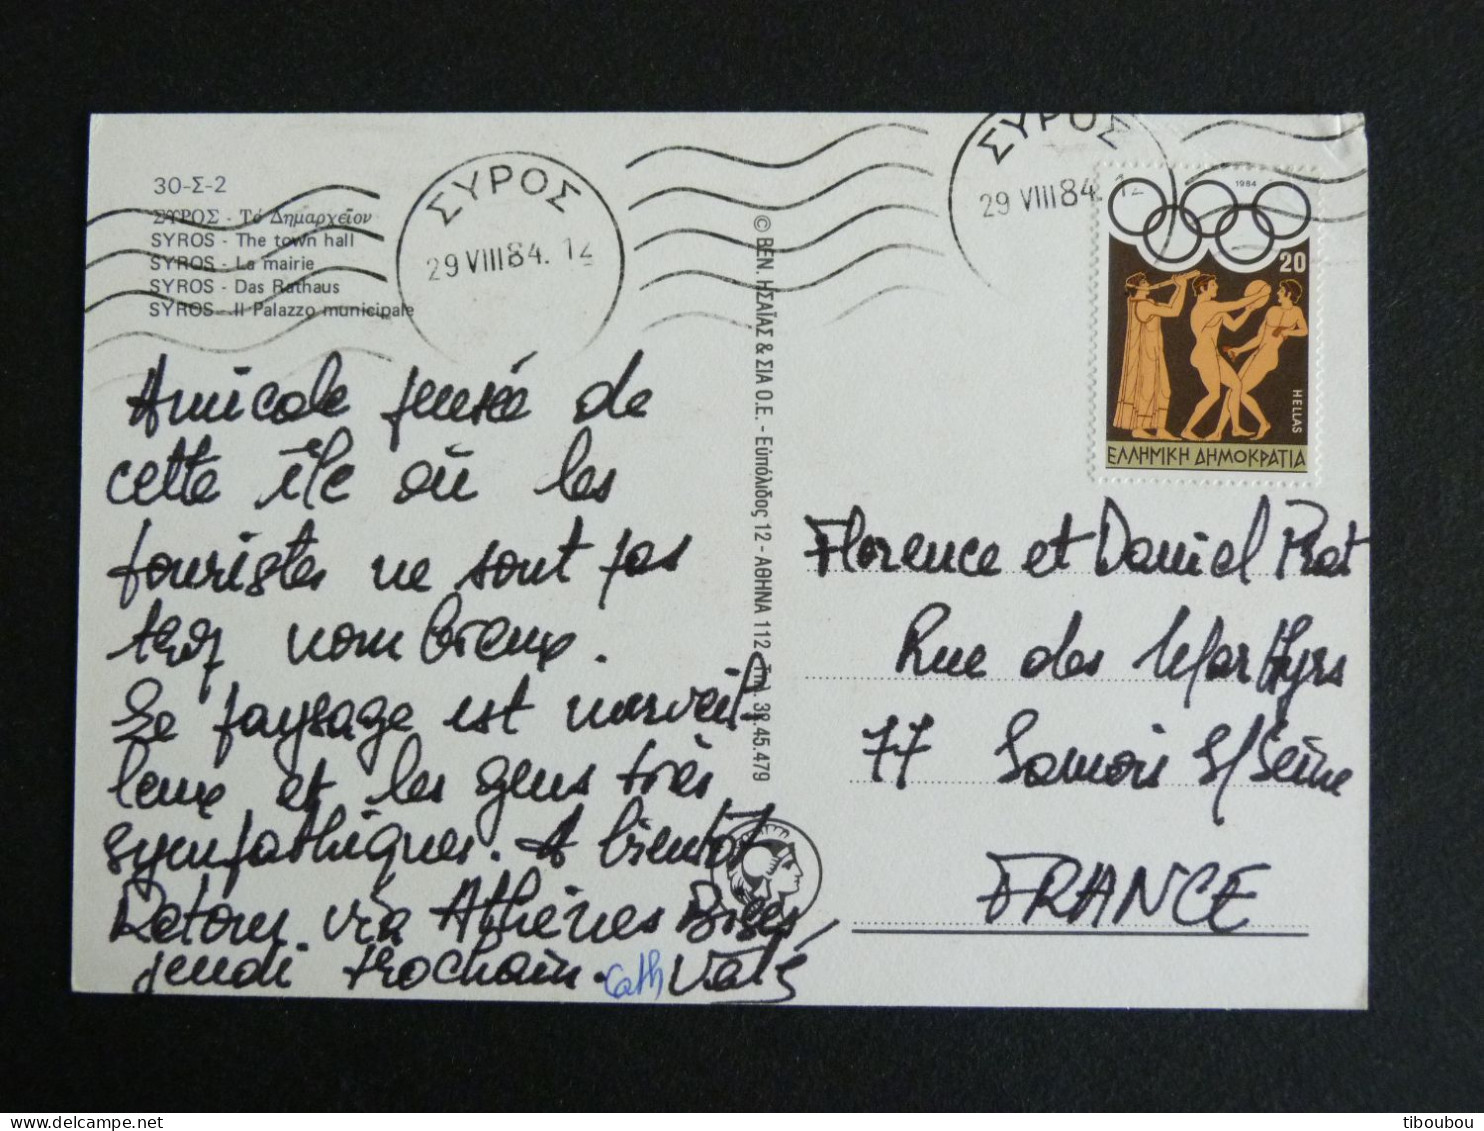 30-Σ-2
ΣΥΡΟΣ - Τό Δημαρχεῖον
SYROS - The town hall
SYROS - La mairie
SYROS - Das Rathaus
SYROS - Il Palazzo municipale
ΣΥΡΟΣ
29 VIII 84. 12
ΣΥΡΟΣ
29 VIII 84. 12
1984
20
HELLAS
ΕΛΛΗΝΙΚΗ ΔΗΜΟΚΡΑΤΙΑ
© ΒΕΝ. ΗΣΑΪΑΣ & ΣΙΑ Ο.Ε. - Εὐπόλιδος 12 - ΑΘΗΝΑ 112 Τηλ. 32.45.479
Amicale pensée de
cette île où les
touristes ne sont pas
trop nombreux.
Le paysage est merveil
leux et les gens très
sympathiques. A bientôt
Retour via Athènes Bises
jeudi prochain. Cath Valé
Florence et Daniel Prat
Rue des Martyrs
77 Samois S/Seine
FRANCE
tiboubou